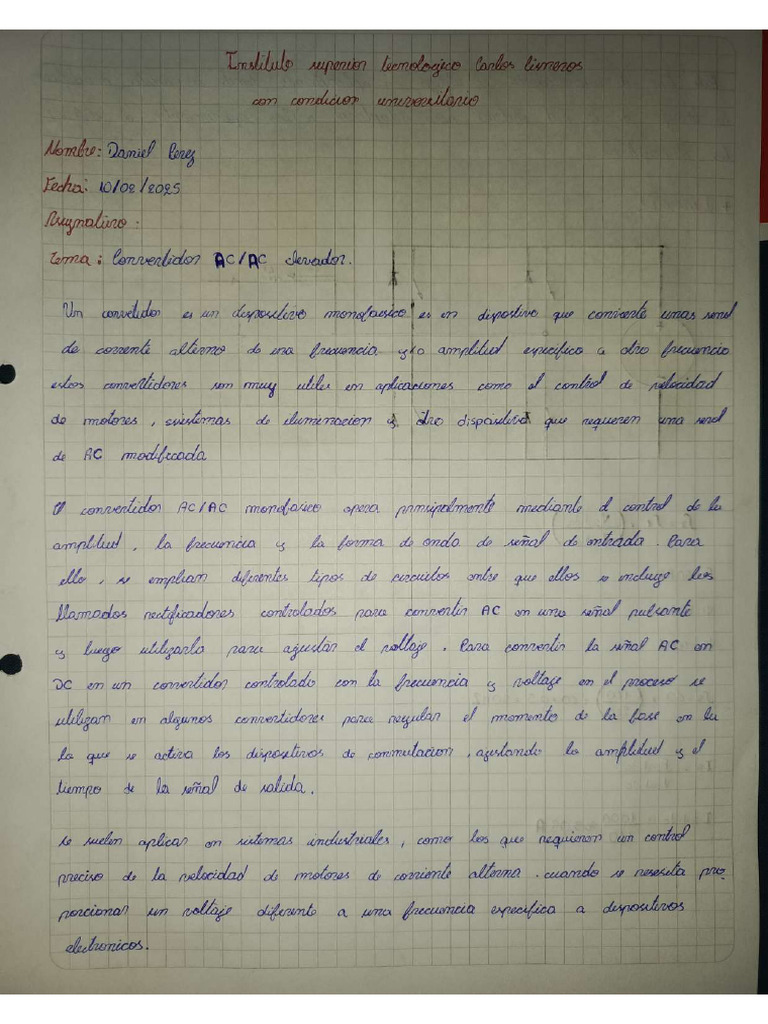 Instituto superior tecnologico Carlos Cisneros
con condicion universitario
Nombre: Daniel Perez
Fecha: 10/02/2025
Asignatura:
Tema: Convertidor AC/AC elevador.
Un convetidor es un dispositivo monofasico es en dispostivo que convierte unas senal
de corrente alterno de una frecuencia y/o amplitud especifico a otro frecuencio
estos convertidores son muy utiles en aplicaciones como el control de velocidad
de motores, sistemas de iluminacion y otro dispositivo que requeren una senal
de AC modificada
El convertidor AC/AC monofasico opera principalmente mediante el control de la
amplitud, la frecuencia y la forma de onda de señal de entrada. Para
ello, se emplian diferentes tipos de circuitos entre que ellos se incluye los
llamados rectificadores controlados para convertir AC en una señal pulsante
y luego utilizarlo para ajustar el voltaje. Para convertir la señal AC en
DC en un convertidor controlado con la frecuencia y voltaje en el proceso se
utilizan en algunos convertidores para regular el momento de la fase en la
la que se activa los dispositivos de conmutacion, ajustando la amplitud y el
tiempo de la señal de salida.
se suelen aplicar en sistemas industriales, como los que requieren un control
preciso de la velocidad de motores de corriente alterna. cuando se nesesita pro-
porcionar un voltaje diferente a una frecuencia especifica a dispositivos
electronicos.